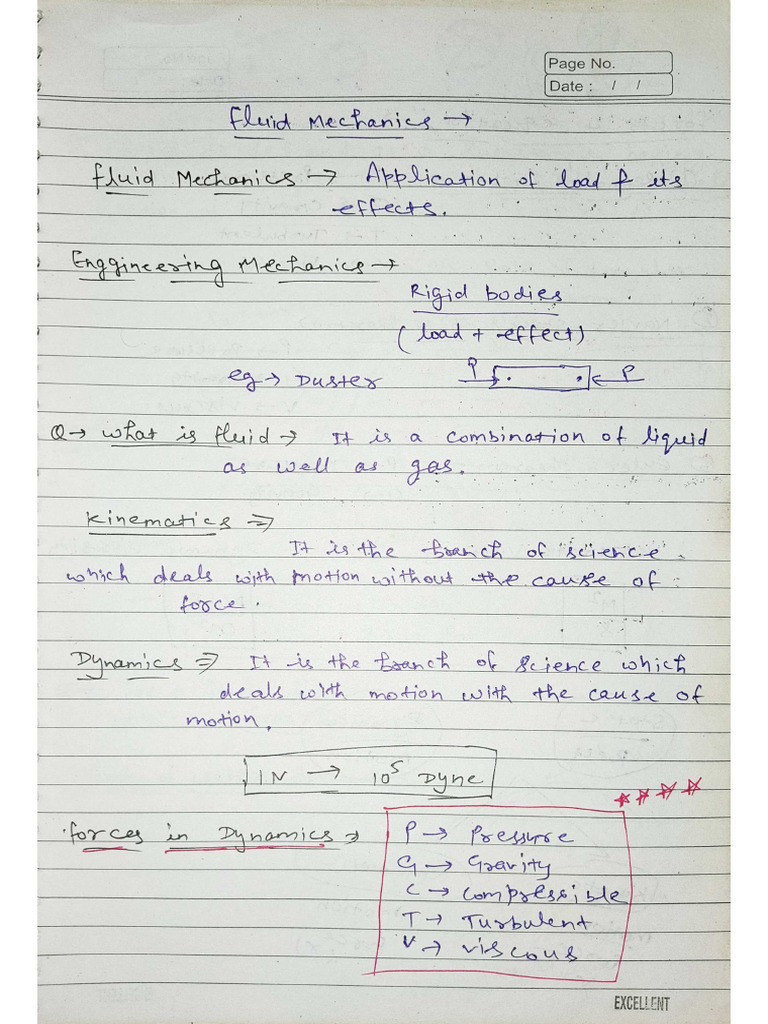 Page No.
Date : / /
Fluid Mechanics →
Fluid Mechanics → Application of load & its
effects.
Enggineering Mechanics →
Rigid bodies
(load + effect)
eg → Duster P → ← P
Q → what is fluid → It is a combination of liquid
as well as gas.
Kinematics ⇒
It is the branch of science
which deals with motion without the cause of
force.
Dynamics ⇒ It is the branch of science which
deals with motion with the cause of
motion.
1N → 10⁵ Dyne
Forces in Dynamics → P → Pressure
G → Gravity
C → Compressible
T → Turbulent
V → viscous
EXCELLENT